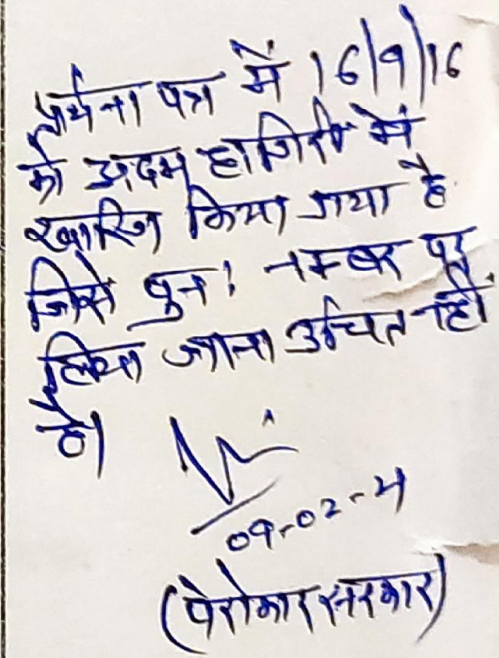 प्रार्थना पत्र में 16/9/16
को अदम हाजिरी में
खारिज किया गया है
जिसे पुनः नम्बर पर
लिया जाना उचित नही
है।
09-02-21
(पेरोकार सरकार)